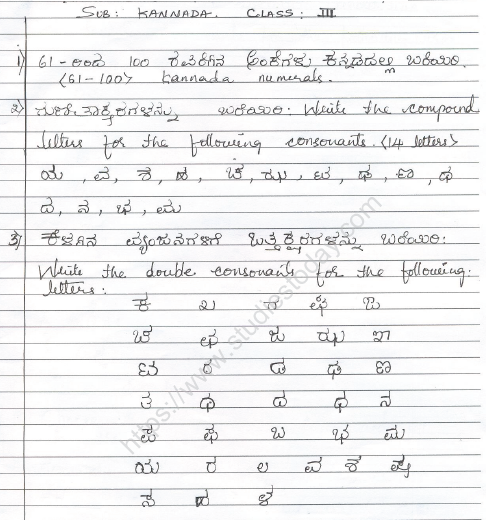 SUB: KANNADA. CLASS: III
1) 61-ರಿಂದ 100 ರವರೆಗಿನ ಅಂಕಿಗಳು ಕನ್ನಡದಲ್ಲಿ ಬರೆಯಿರಿ.
<61-100> kannada numerals.
2) ಗುಣಿತಾಕ್ಷರಗಳನ್ನು ಬರೆಯಿರಿ: Write the compound
letters for the following consonants. <14 letters>
ಯ, ವ, ಶ,
ದ, ನ, ಭ, ಮ
3) ಕೆಳಗಿನ ವ್ಯಂಜನಗಳಿಗೆ ಒತ್ತಕ್ಷರಗಳನ್ನು ಬರೆಯಿರಿ:
Write the double consonants for the following:
letters:
ಕ ಖ ಗ ಘ ಙ
ಚ ಛ ಜ ಝ ಞ
ಟ ಠ ಡ ಢ ಣ
ತ ಥ ದ ಧ ನ
ಪ ಫ ಬ ಭ ಮ
ಯ ರ ಲ ವ ಶ ಷ
ಸ ಹ ಳ
https://www.studiestoday.com